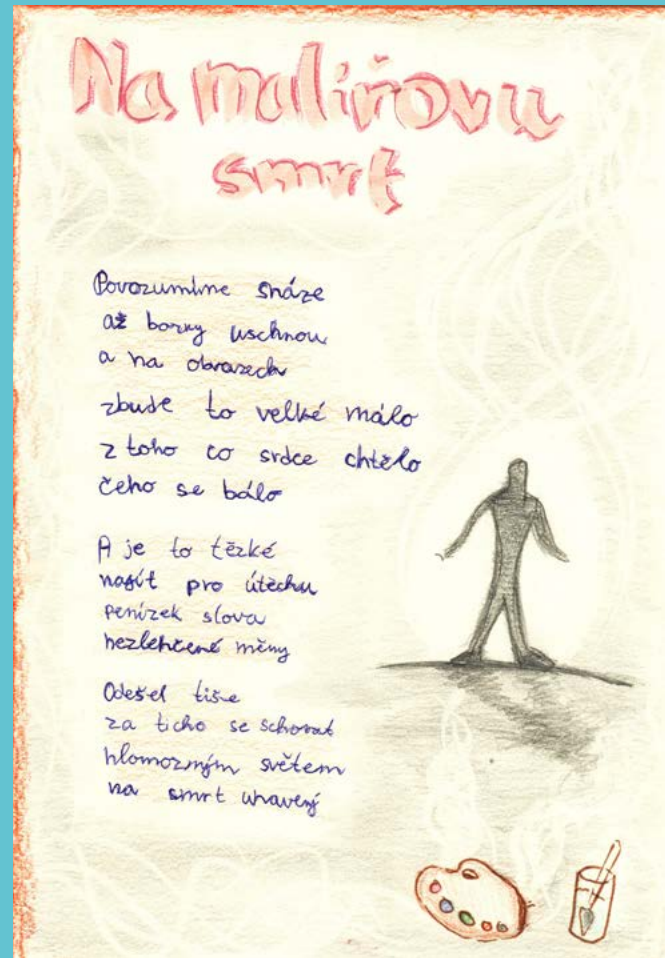 Na malířovu
smrt
Porozumíme snáze
až barvy uschnou
a na obrazech
zbude to velké málo
z toho co srdce chtělo
čeho se bálo
A je to těžké
najít pro útěchu
penízek slova
nezlehčené měny
Odešel tiše
za ticho se schovat
hlomozným světem
na smrt unavený